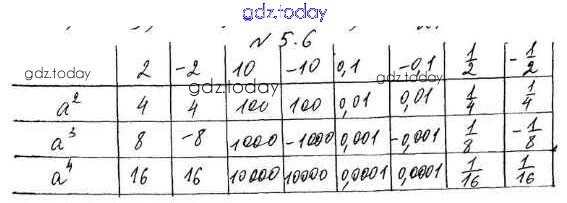 gdz.today
N 5.6
2 -2 10 -10 0,1 -0,1 1/2 -1/2
gdz.today gdz.today gdz.today
a² 4 4 100 100 0,01 0,01 1/4 1/4
a³ 8 -8 1000 -1000 0,001 -0,001 1/8 -1/8
a⁴ 16 16 10000 10000 0,0001 0,0001 1/16 1/16